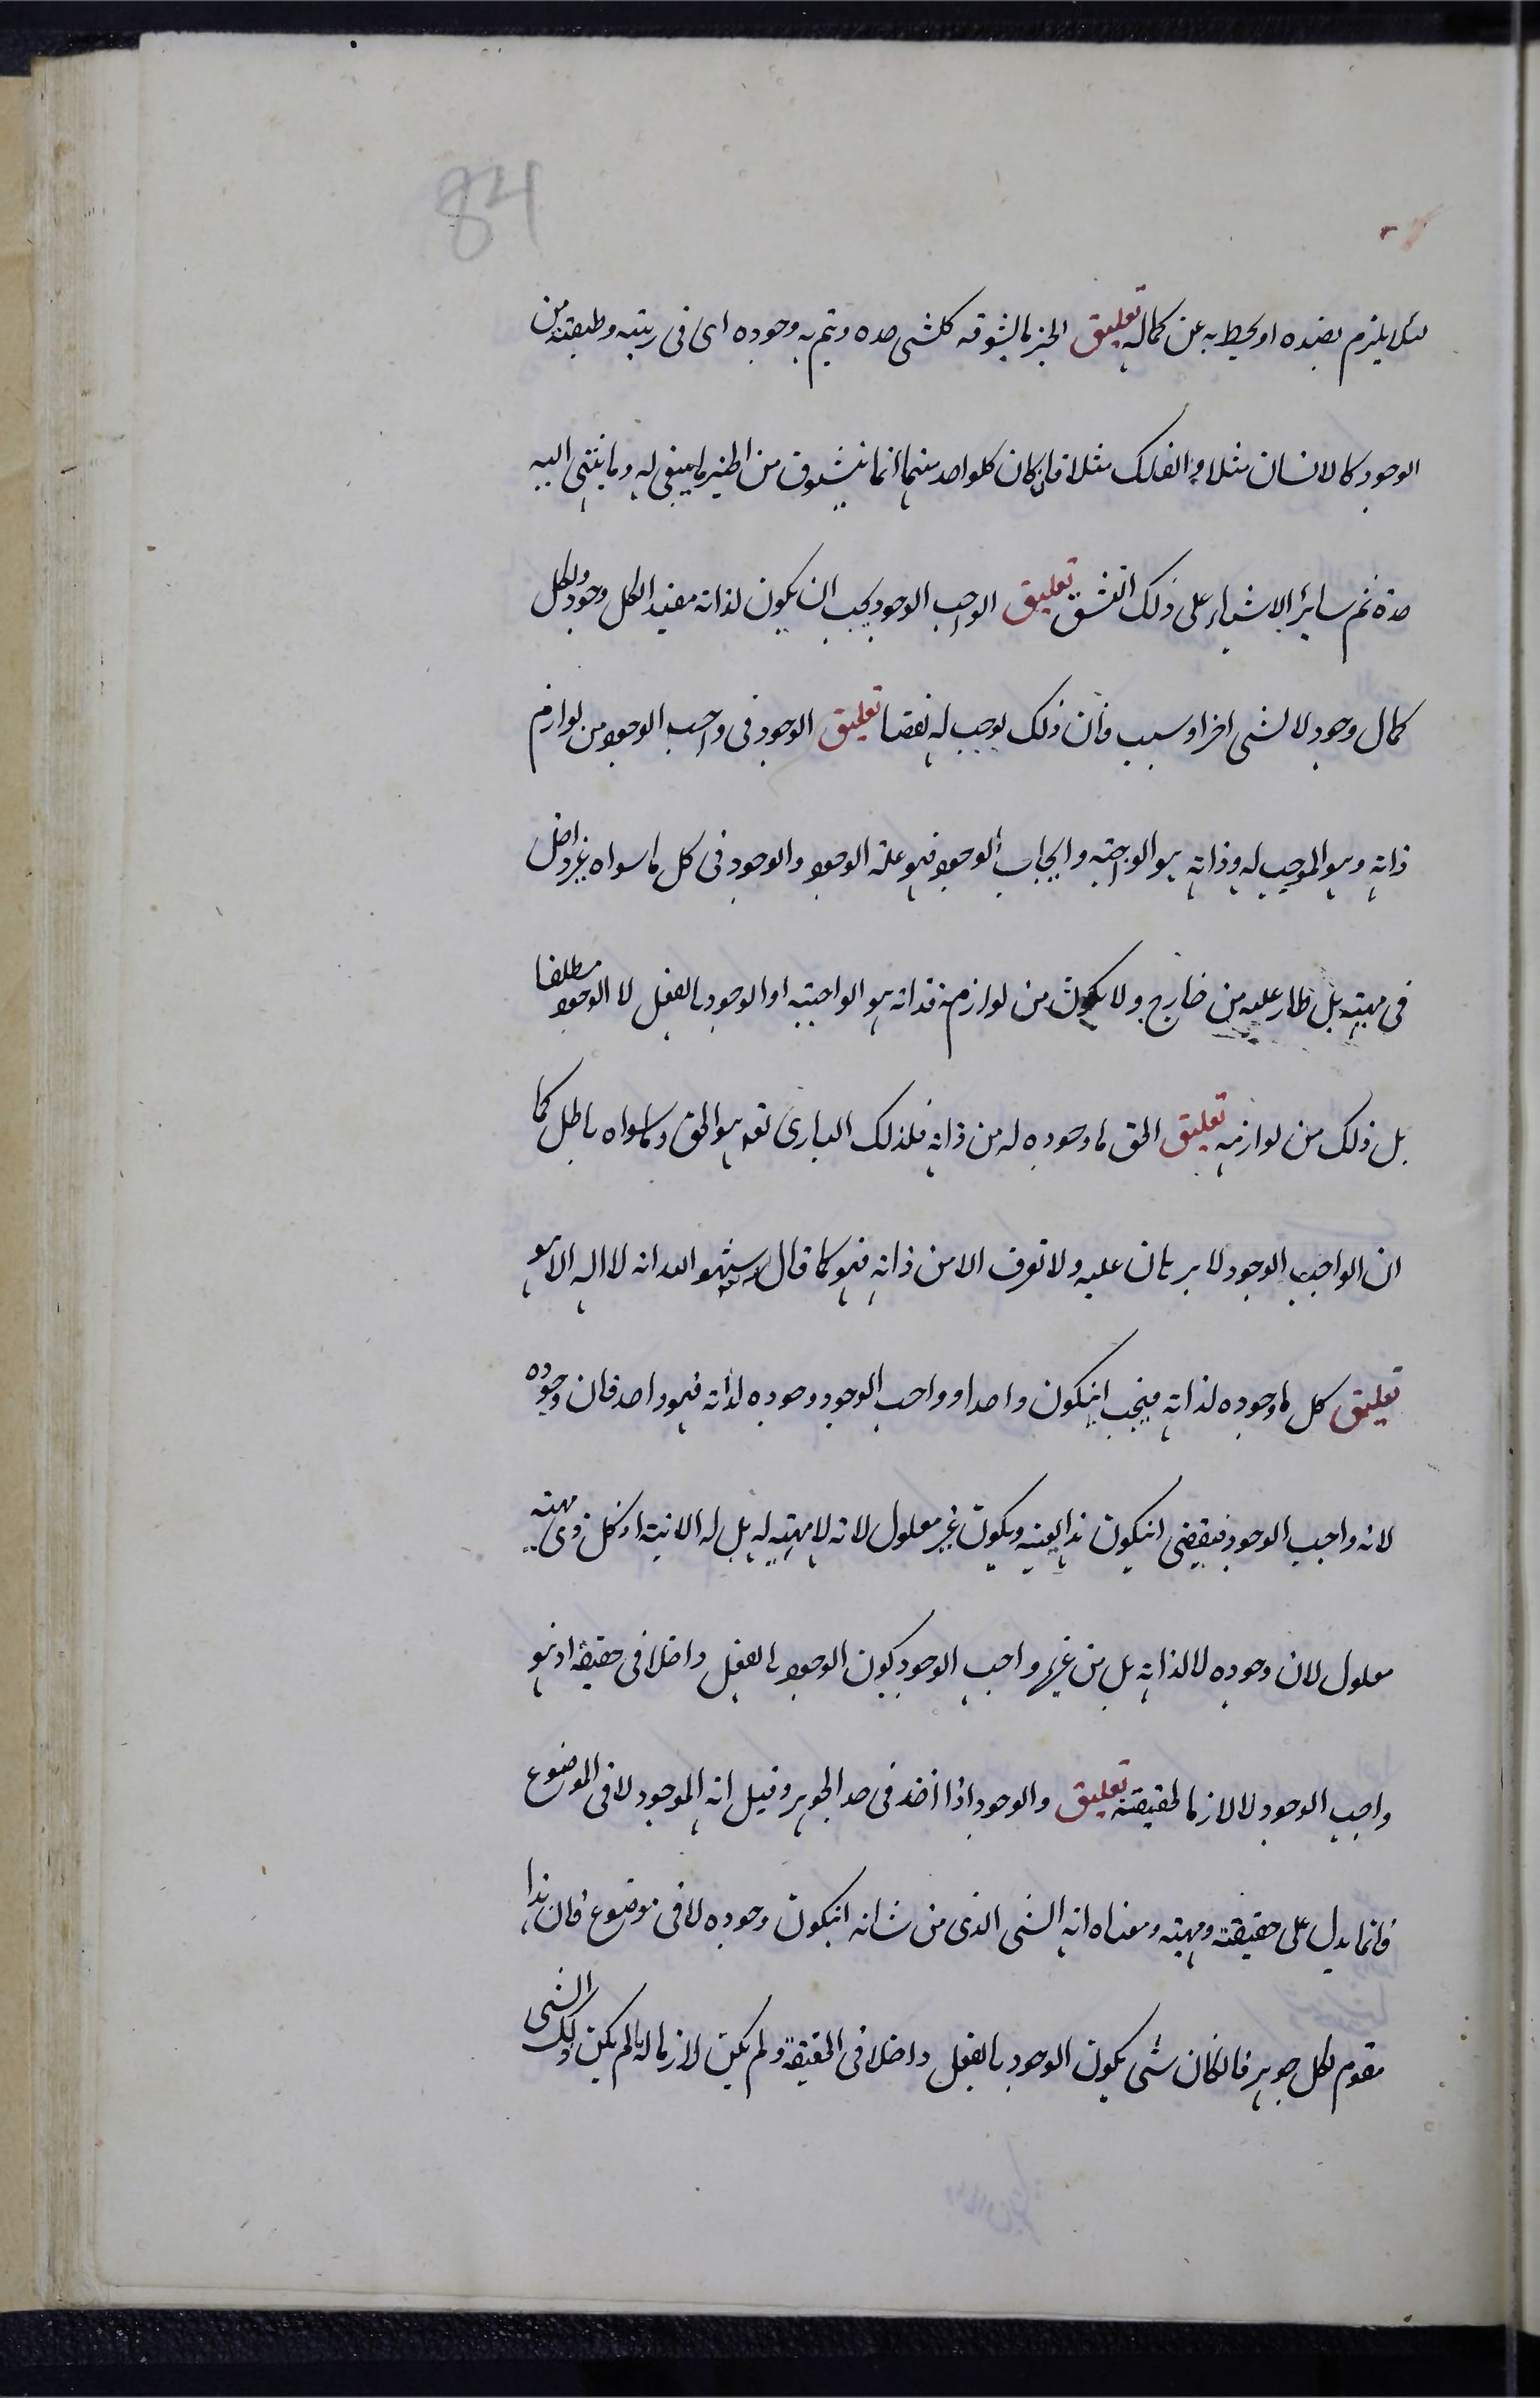 84
لئلا يلزم بضده او يحيط به عن كماله تعليق الخير ما يتشوقه كلشى حده ويتم به وجوده اى فى رتبته وطبيعته من
الوجود كالانسان مثلا والفلك مثلا فان كان كلواحد منهما انما يتشوق من الخير ما ينبغى له وما ينتهى اليه
حده ثم ساير الاشياء على ذلك تعليق الواجب الوجود يجب ان يكون لذاته مفيد الكل وجود ولكل
كمال وجود لا لشى اخر او سبب فان ذلك يوجب له نقصا تعليق الوجود فى واجب الوجود من لوازم
ذاته وهو الموجب له وذاته هو الواجبية وايجاب الوجود فهو علة الوجود والوجود فى كل ما سواه غير داخل
فى مهيته بل طار عليه من خارج ولا يكون من لوازمه فذاته هو الواجبية او الوجود بالفعل لا الوجود مطلقا
بل ذلك من لوازمه تعليق الحق ما وجوده له من ذاته فلذلك البارى تعه هو الحق وما سواه باطل كما
ان الواجب الوجود لا برهان عليه ولا تعرف الا من ذاته فهو كما قال شهد الله انه لا اله الا هو
تعليق كل ما وجوده لذاته فيجب انيكون واحدا وواجب الوجود وجوده لذاته فهو واحد فان وجوده
لانه واجب الوجود فيقتضى انيكون هذا بعينه ويكون غير معلول لانه لا مهية له بل له الانية اذ كل ذى مهية
معلول لان وجوده لا لذاته بل من غيره واجب الوجود يكون الوجود بالفعل داخلا فى حقيقة اذ هو
واجب الوجود لا لازما لحقيقته تعليق والوجود اذا اخذ فى حد الجوهر وقيل انه الموجود لا فى الموضوع
فانما يدل على حقيقة ومهية ومعناه انه الشى الذى من شانه انيكون وجوده لا فى موضوع فان هذا
مقوم لكل جوهر فان كان شى يكون الوجود بالفعل داخلا فى الحقيقة ولم يكن لازما لها لم يكن ذلك الشى